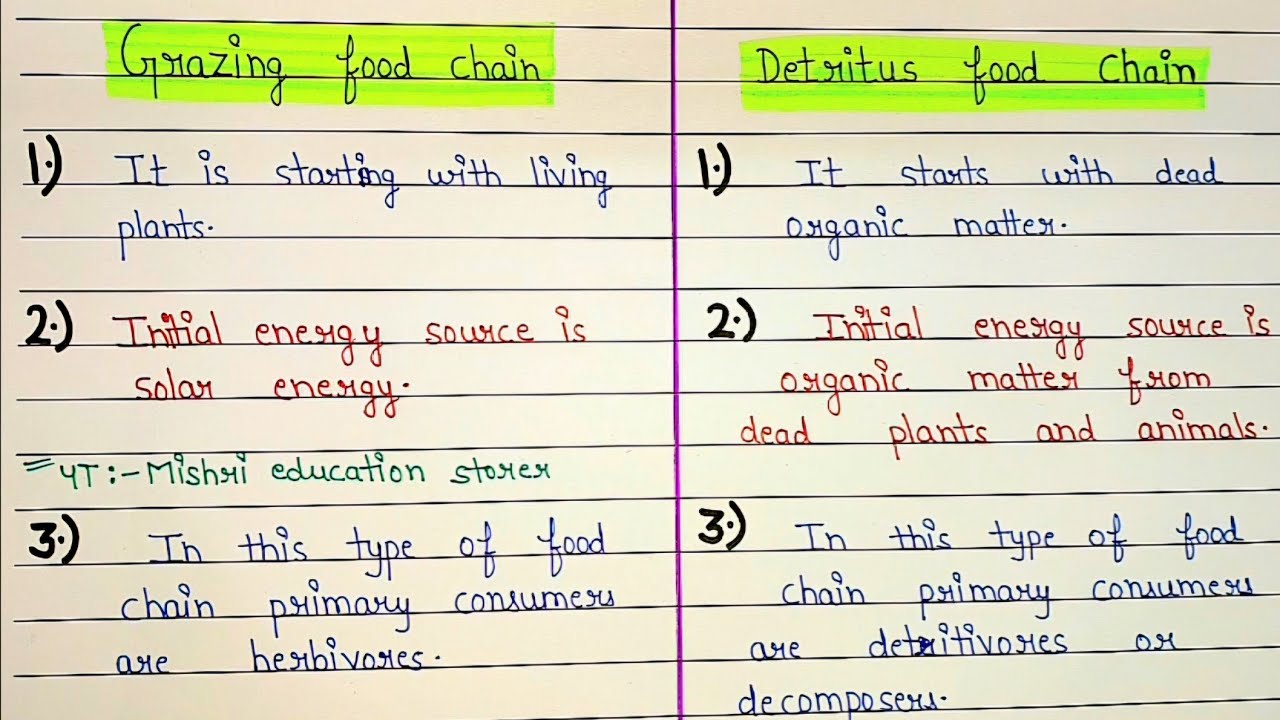 Grazing food chain
1.) It is starting with living
plants.
2.) Initial energy source is
solar energy.
YT:- Mishri education storer
3.) In this type of food
chain primary consumers
are herbivores.
Detritus food chain
1.) It starts with dead
organic matter.
2.) Initial energy source is
organic matter from
dead plants and animals.
3.) In this type of food
chain primary consumers
are detritivores or
decomposers.